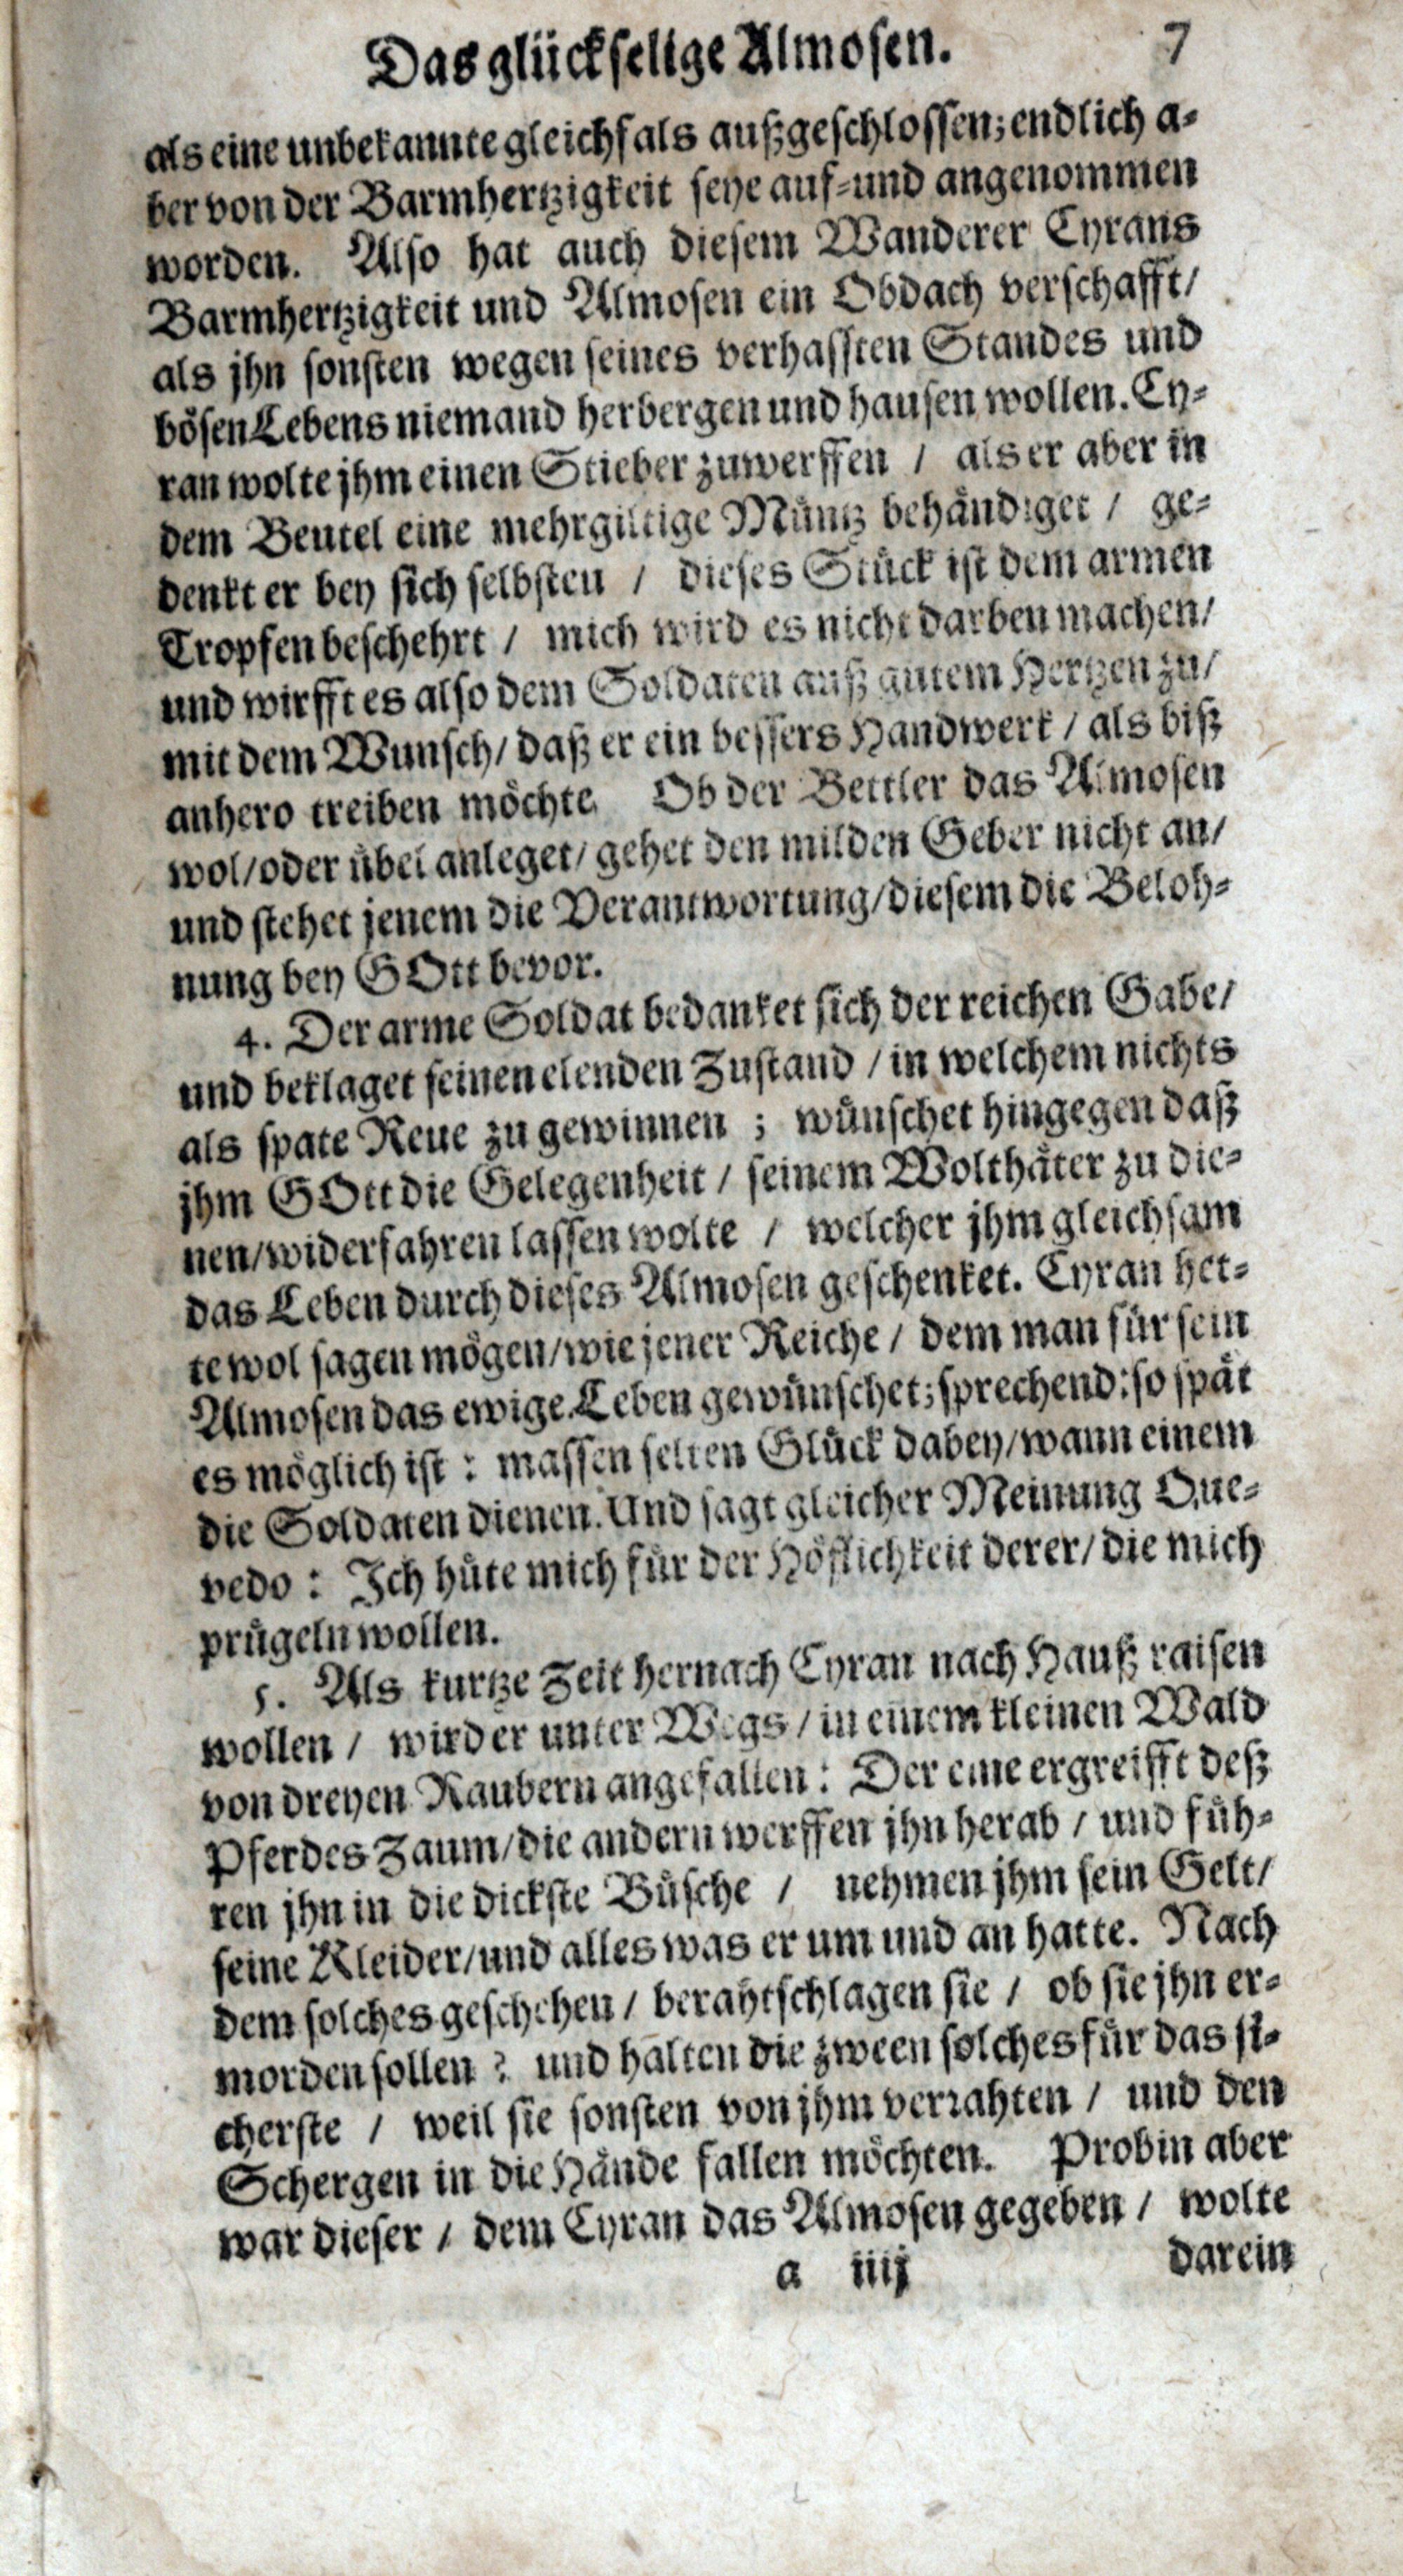 Das glückselige Almosen. 7
als eine unbekannte gleichfals außgeschlossen; endlich a-
ber von der Barmhertzigkeit seye auf- und angenommen
worden. Also hat auch diesem Wanderer Cyrans
Barmhertzigkeit und Almosen ein Obdach verschafft/
als jhn sonsten wegen seines verhassten Standes und
bösen Lebens niemand herbergen und hausen wollen. Cy-
ran wolte jhm einen Stieber zuwerffen / als er aber in
dem Beutel eine mehrgiltige Müntz behändiget / ge-
denkt er bey sich selbsten / dieses Stück ist dem armen
Tropfen beschehrt / mich wird es nicht darben machen/
und wirfft es also dem Soldaten auß gutem Hertzen zu/
mit dem Wunsch/ daß er ein bessers Handwerk / als biß
anhero treiben möchte. Ob der Bettler das Almosen
wol/oder übel anleget/ gehet den milden Geber nicht an/
und stehet jenem die Verantwortung/diesem die Beloh-
nung bey GOtt bevor.
4. Der arme Soldat bedanket sich der reichen Gabe/
und beklaget seinen elenden Zustand / in welchem nichts
als spate Reue zu gewinnen ; wünschet hingegen daß
jhm GOtt die Gelegenheit / seinem Wolthäter zu die-
nen/widerfahren lassen wolte / welcher jhm gleichsam
das Leben durch dieses Almosen geschenket. Cyran het-
te wol sagen mögen/wie jener Reiche / dem man für sein
Almosen das ewige Leben gewünschet; sprechend: so spät
es möglich ist : massen selten Glück dabey/wann einem
die Soldaten dienen. Und sagt gleicher Meinung Que-
vedo : Ich hüte mich für der Höflichkeit derer/ die mich
prügeln wollen.
5. Als kurtze Zeit hernach Cyran nach Hauß raisen
wollen / wird er unter Wegs / in einem kleinen Wald
von dreyen Raubern angefallen : Der eine ergreifft deß
Pferdes Zaum/die andern werffen jhn herab / und füh-
ren jhn in die dickste Büsche / nehmen jhm sein Gelt/
seine Kleider/und alles was er um und an hatte. Nach
dem solches geschehen / berahtschlagen sie / ob sie jhn er-
morden sollen ? und halten die zween solches für das si-
cherste / weil sie sonsten von jhm verrahten / und den
Schergen in die Hände fallen möchten. Probin aber
war dieser / dem Cyran das Almosen gegeben / wolte
a iiij darein